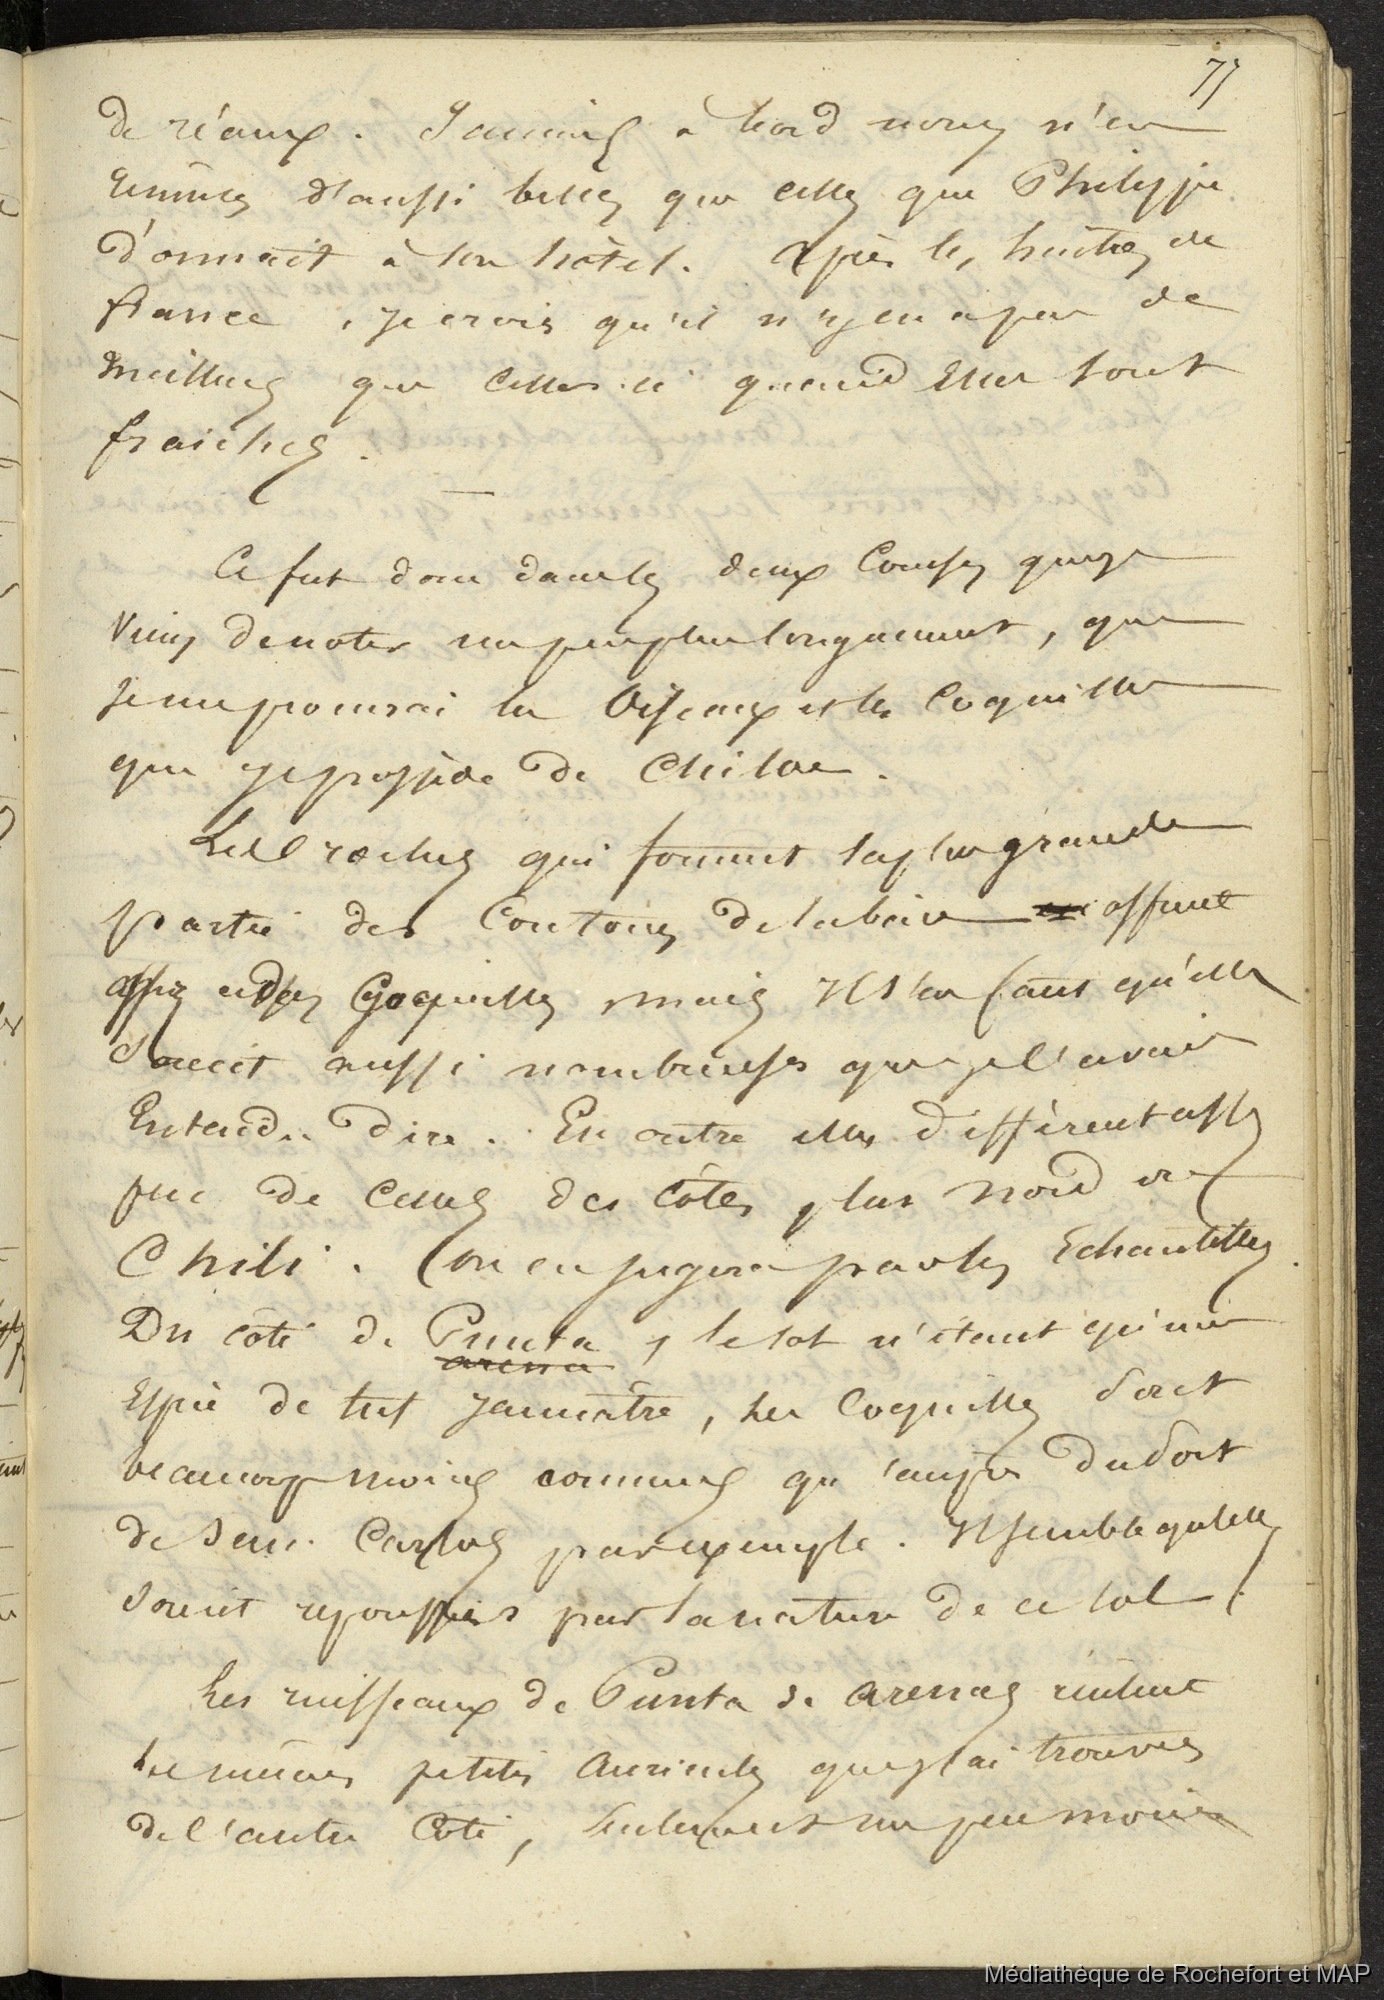 77
de réaux. Jamais à bord nous n'en
eûmes d'aussi belles que celles que Philippe
donnait à son hôtel. Après les huîtres de
france, je crois qu'il n'y en a pas de
meilleures que celles-ci quand elles sont
fraiches.
Ce fut donc dans les deux Courses que je
viens de noter un peu plus longuement, que
je me procurai les Oiseaux et les Coquilles
que je possède de Chiloe.
Les roches qui forment la plus grande
partie des Contours de la baie offrent
assez de Coquilles mais il s'en faut qu'elles
soient aussi nombreuses que je l'avais
Entendu dire. En outre elles différent assez
peu de celles des côtes plus nord du
Chili. (on en jugera par les Echantillons.
Du côté de Punta, le sol n'étant qu'une
Espèce de tuf jaunâtre, les Coquilles sont
beaucoup moins communes qu'auprès du fort
de San Carlos par exemple. Il semble qu'elles
soient repoussées par la nature de ce sol.
Les ruisseaux de Punta de arenas
les mêmes petites Auricules que j'ai trouvées
de l'autre Côté, seulement un peu moins
Médiathèque de Rochefort et MAP